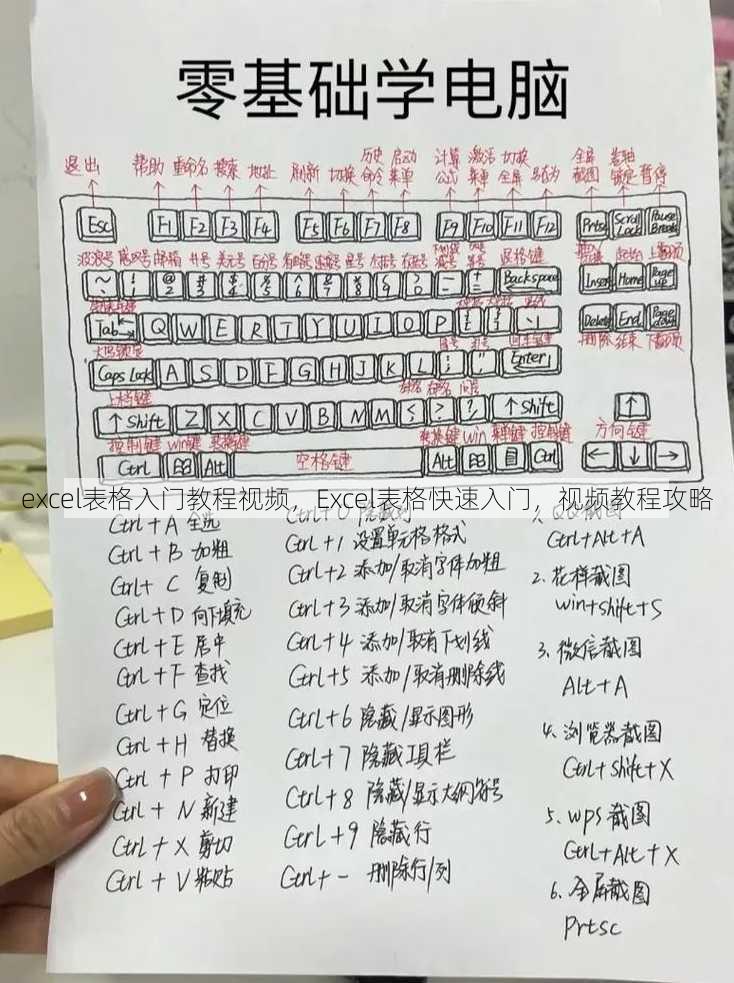 零基础学电脑
退出 帮助 重命名 搜索 地址 刷新 切换 历史命令 启动菜单 计算公式 激活菜单 切换全屏 另存为 全屏截图 卷轴锁定 暂停
Esc F1 F2 F3 F4 F5 F6 F7 F8 F9 F10 F11 F12 Prtsc Scroll Lock Pause Break
波浪号 感叹号 邮箱 井号 美元号 百分号 星号 左括号 右括号 退格键 起始 上翻页
~ ` ! 1 @ 2 # 3 $ 4 % 5 ^ 6 & 7 * 8 ( 9 ) 0 - + = Backspace Insert Home Page up
Tab Q W E R T Y U I O P { [ } ] \ Delete End Page down
大写锁定 删除 结束 下翻页
Caps Lock A S D F G H J K L : ; " ' Enter
上档键 问号
↑ Shift Z X C V B N M < > ? / ↑ Shift ↑
控制键 win键 转换键 空格键 转换键 Win 菜单键 控制键 方向键
Ctrl Alt Alt Ctrl ← ↓ →
excel表格入门教程视频，Excel表格快速入门，视频教程攻略
Ctrl + A 全选
Ctrl + B 加粗
Ctrl + C 复制
Ctrl + D 向下填充
Ctrl + E 居中
Ctrl + F 查找
Ctrl + G 定位
Ctrl + H 替换
Ctrl + P 打印
Ctrl + N 新建
Ctrl + X 剪切
Ctrl + V 粘贴
Ctrl + 0 隐藏列
Ctrl + 1 设置单元格格式
Ctrl + 2 添加/取消字体加粗
Ctrl + 3 添加/取消字体倾斜
Ctrl + 4 添加/取消下划线
Ctrl + 5 添加/取消删除线
Ctrl + 6 隐藏/显示图形
Ctrl + 7 隐藏工具栏
Ctrl + 8 隐藏/显示大纲符号
Ctrl + 9 隐藏行
Ctrl + - 删除行/列
1. QQ截图
Ctrl+Alt+A
2. 花样截图
win+shift+S
3. 微信截图
Alt+A
4. 浏览器截图
Ctrl+shift+X
5. wps截图
Ctrl+Alt+X
6. 全屏截图
Prtsc